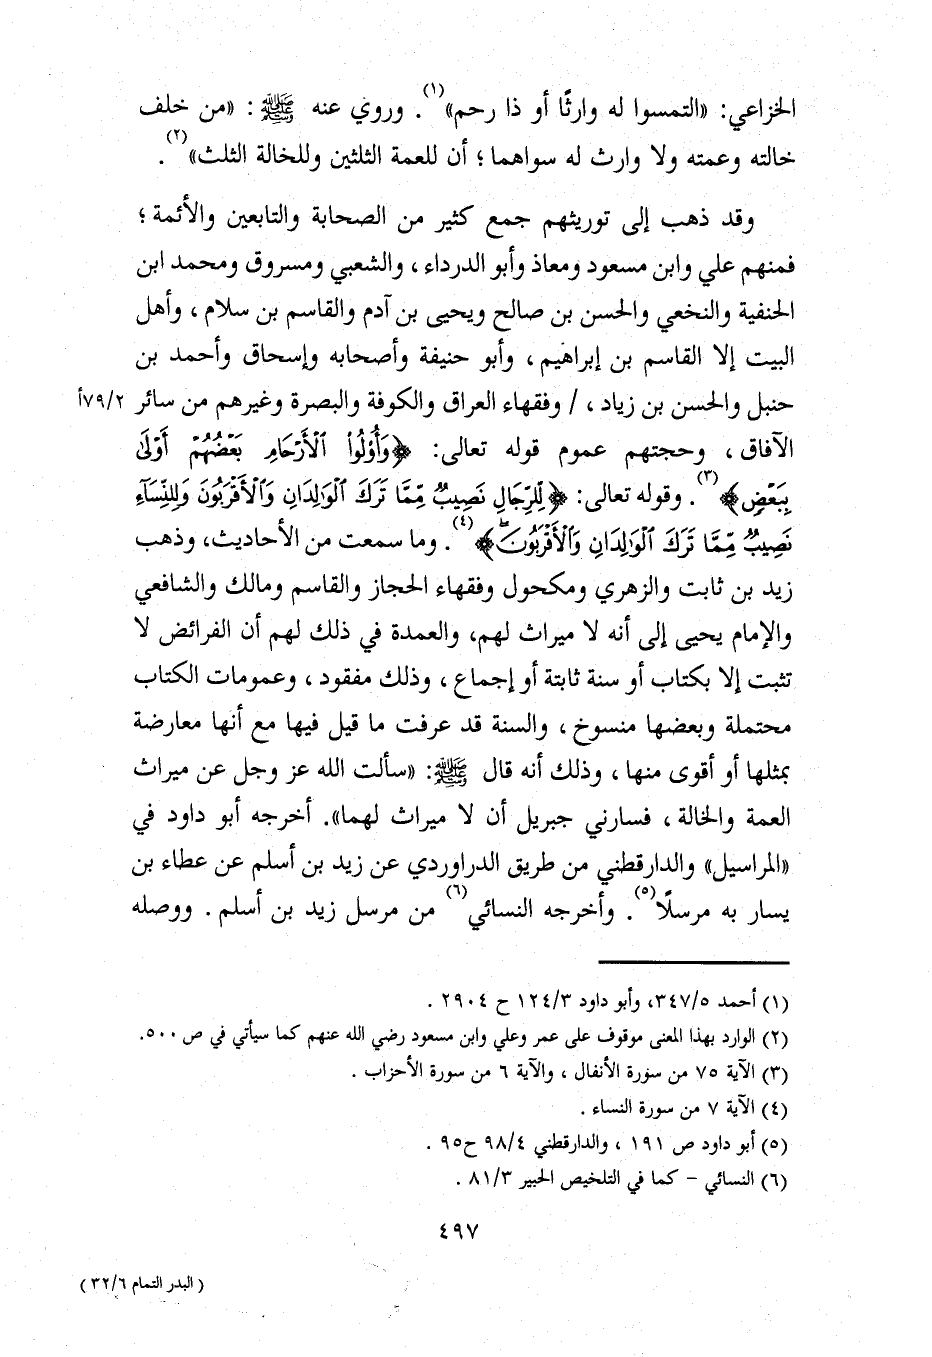 الخزاعي: «التمسوا له وارثًا أو ذا رحم»(١). وروي عنه ﷺ: «من خلف
خالته وعمته ولا وارث له سواهما؛ أن للعمة الثلثين وللخالة الثلث»(٢).
وقد ذهب إلى توريثهم جمع كثير من الصحابة والتابعين والأئمة؛
فمنهم علي وابن مسعود ومعاذ وأبو الدرداء، والشعبي ومسروق ومحمد ابن
الحنفية والنخعي والحسن بن صالح ويحيى بن آدم والقاسم بن سلام، وأهل
البيت إلا القاسم بن إبراهيم، وأبو حنيفة وأصحابه وإسحاق وأحمد بن
حنبل والحسن بن زياد، / وفقهاء العراق والكوفة والبصرة وغيرهم من سائر ٧٩/٢أ
الآفاق، وحجتهم عموم قوله تعالى: ﴿وَأُوْلُواْ ٱلْأَرْحَامِ بَعْضُهُمْ أَوْلَىٰ
بِبَعْضٍ﴾(٣). وقوله تعالى: ﴿لِّلرِّجَالِ نَصِيبٌ مِّمَّا تَرَكَ ٱلْوَٰلِدَانِ وَٱلْأَقْرَبُونَ وَلِلنِّسَآءِ
نَصِيبٌ مِّمَّا تَرَكَ ٱلْوَٰلِدَانِ وَٱلْأَقْرَبُونَ﴾(٤). وما سمعت من الأحاديث، وذهب
زيد بن ثابت والزهري ومكحول وفقهاء الحجاز والقاسم ومالك والشافعي
والإمام يحيى إلى أنه لا ميراث لهم، والعمدة في ذلك لهم أن الفرائض لا
تثبت إلا بكتاب أو سنة ثابتة أو إجماع، وذلك مفقود، وعمومات الكتاب
محتملة وبعضها منسوخ، والسنة قد عرفت ما قيل فيها مع أنها معارضة
بمثلها أو أقوى منها، وذلك أنه قال ﷺ: «سألت الله عز وجل عن ميراث
العمة والخالة، فسارني جبريل أن لا ميراث لهما». أخرجه أبو داود في
«المراسيل» والدارقطني من طريق الدراوردي عن زيد بن أسلم عن عطاء بن
يسار به مرسلًا(٥). وأخرجه النسائي(٦) من مرسل زيد بن أسلم. ووصله
(١) أحمد ٣٤٧/٥، وأبو داود ١٢٤/٣ ح ٢٩٠٤.
(٢) الوارد بهذا المعنى موقوف على عمر وعلي وابن مسعود رضي الله عنهم كما سيأتي في ص ٥٠٠.
(٣) الآية ٧٥ من سورة الأنفال، والآية ٦ من سورة الأحزاب.
(٤) الآية ٧ من سورة النساء.
(٥) أبو داود ص ١٩١، والدارقطني ٩٨/٤ ح٩٥.
(٦) النسائي - كما في التلخيص الحبير ٨١/٣.
٤٩٧
(البدر التمام ٣٢/٦)